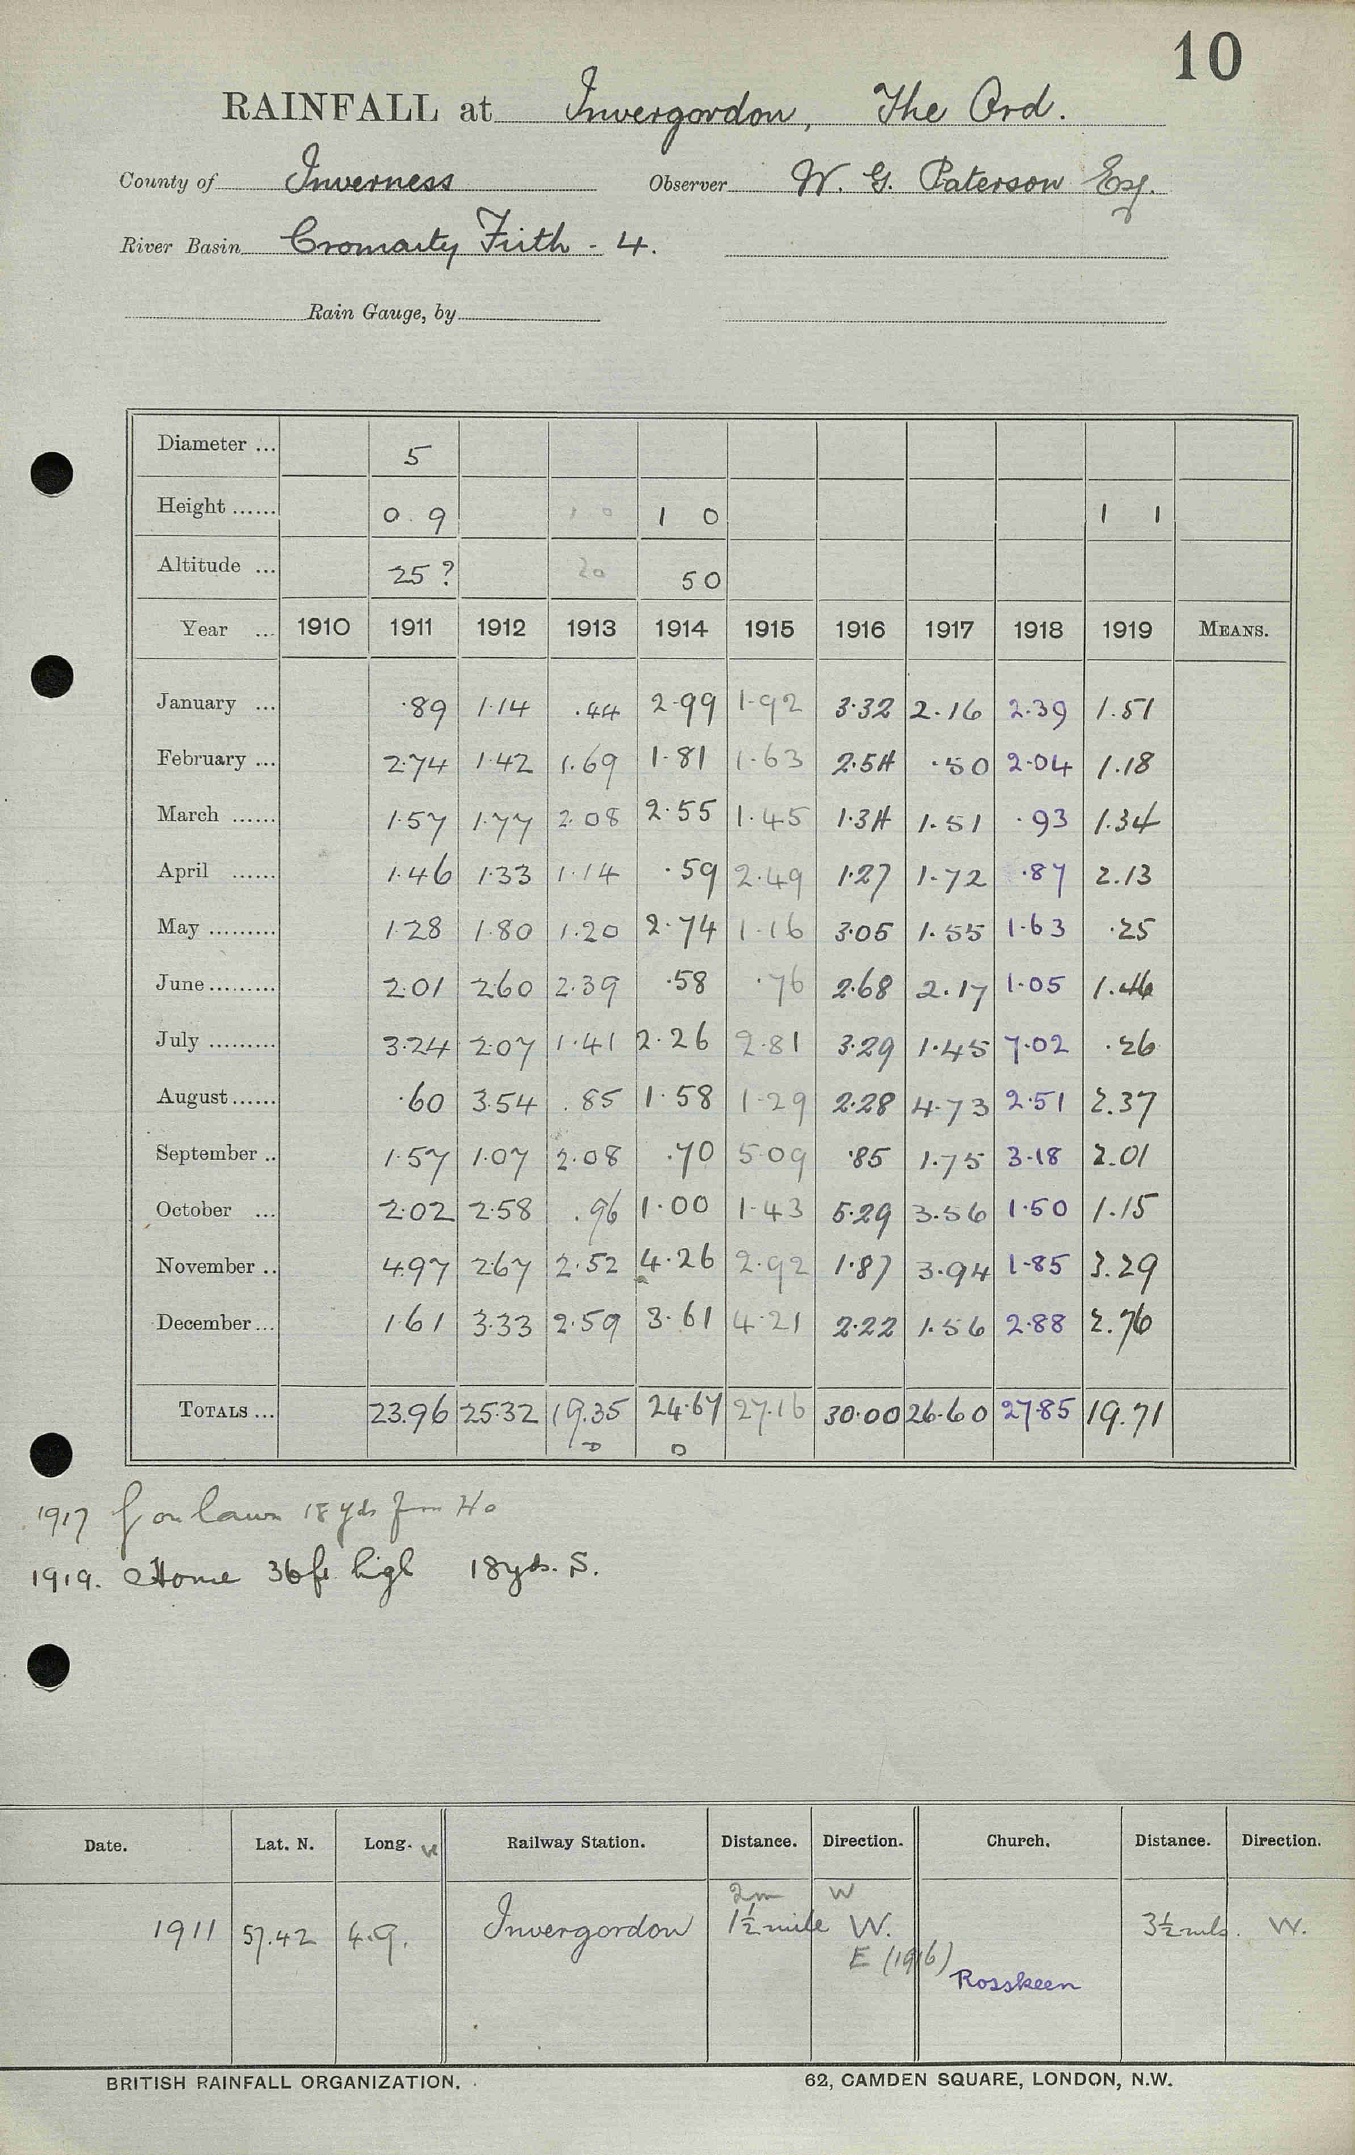 10
RAINFALL at Invergordon, The Ord.
County of Inverness Observer W. G. Paterson Esq.
River Basin Cromarty Firth - 4.
Rain Gauge, by
Diameter ... 5
Height ...... 0 9 1 0 1 0 1 1
Altitude ... 25? 20 50
Year ... 1910 1911 1912 1913 1914 1915 1916 1917 1918 1919 MEANS.
January ... .89 1.14 .44 2.99 1.92 3.32 2.16 2.39 1.51
February ... 2.74 1.42 1.69 1.81 1.63 2.54 .50 2.04 1.18
March ...... 1.57 1.77 2.08 2.55 1.45 1.34 1.51 .93 1.34
April ...... 1.46 1.33 1.14 .59 2.49 1.27 1.72 .87 2.13
May ......... 1.28 1.80 1.20 2.74 1.16 3.05 1.55 1.63 .25
June ......... 2.01 2.60 2.39 .58 .76 2.68 2.17 1.05 1.46
July ......... 3.24 2.07 1.41 2.26 2.81 3.29 1.45 7.02 .26
August ...... .60 3.54 .85 1.58 1.29 2.28 4.73 2.51 2.37
September .. 1.57 1.07 2.08 .70 5.09 .85 1.75 3.18 2.01
October ... 2.02 2.58 .96 1.00 1.43 5.29 3.56 1.50 1.15
November .. 4.97 2.67 2.52 4.26 2.92 1.87 3.94 1.85 3.29
December ... 1.61 3.33 2.59 3.61 4.21 2.22 1.56 2.88 2.76
TOTALS ... 23.96 25.32 19.35 24.67 27.16 30.00 26.60 27.85 19.71
D D
1917 on lawn 18 yds from Ho
1919. Home 36 ft high 18 yds. S.
Date. Lat. N. Long. W Railway Station. Distance. Direction. Church. Distance. Direction.
2m W
1911 57.42 4.9. Invergordon 1½ mile W. 3½ mls. W.
E (1916)
Rosskeen
BRITISH RAINFALL ORGANIZATION. 62, CAMDEN SQUARE, LONDON, N.W.